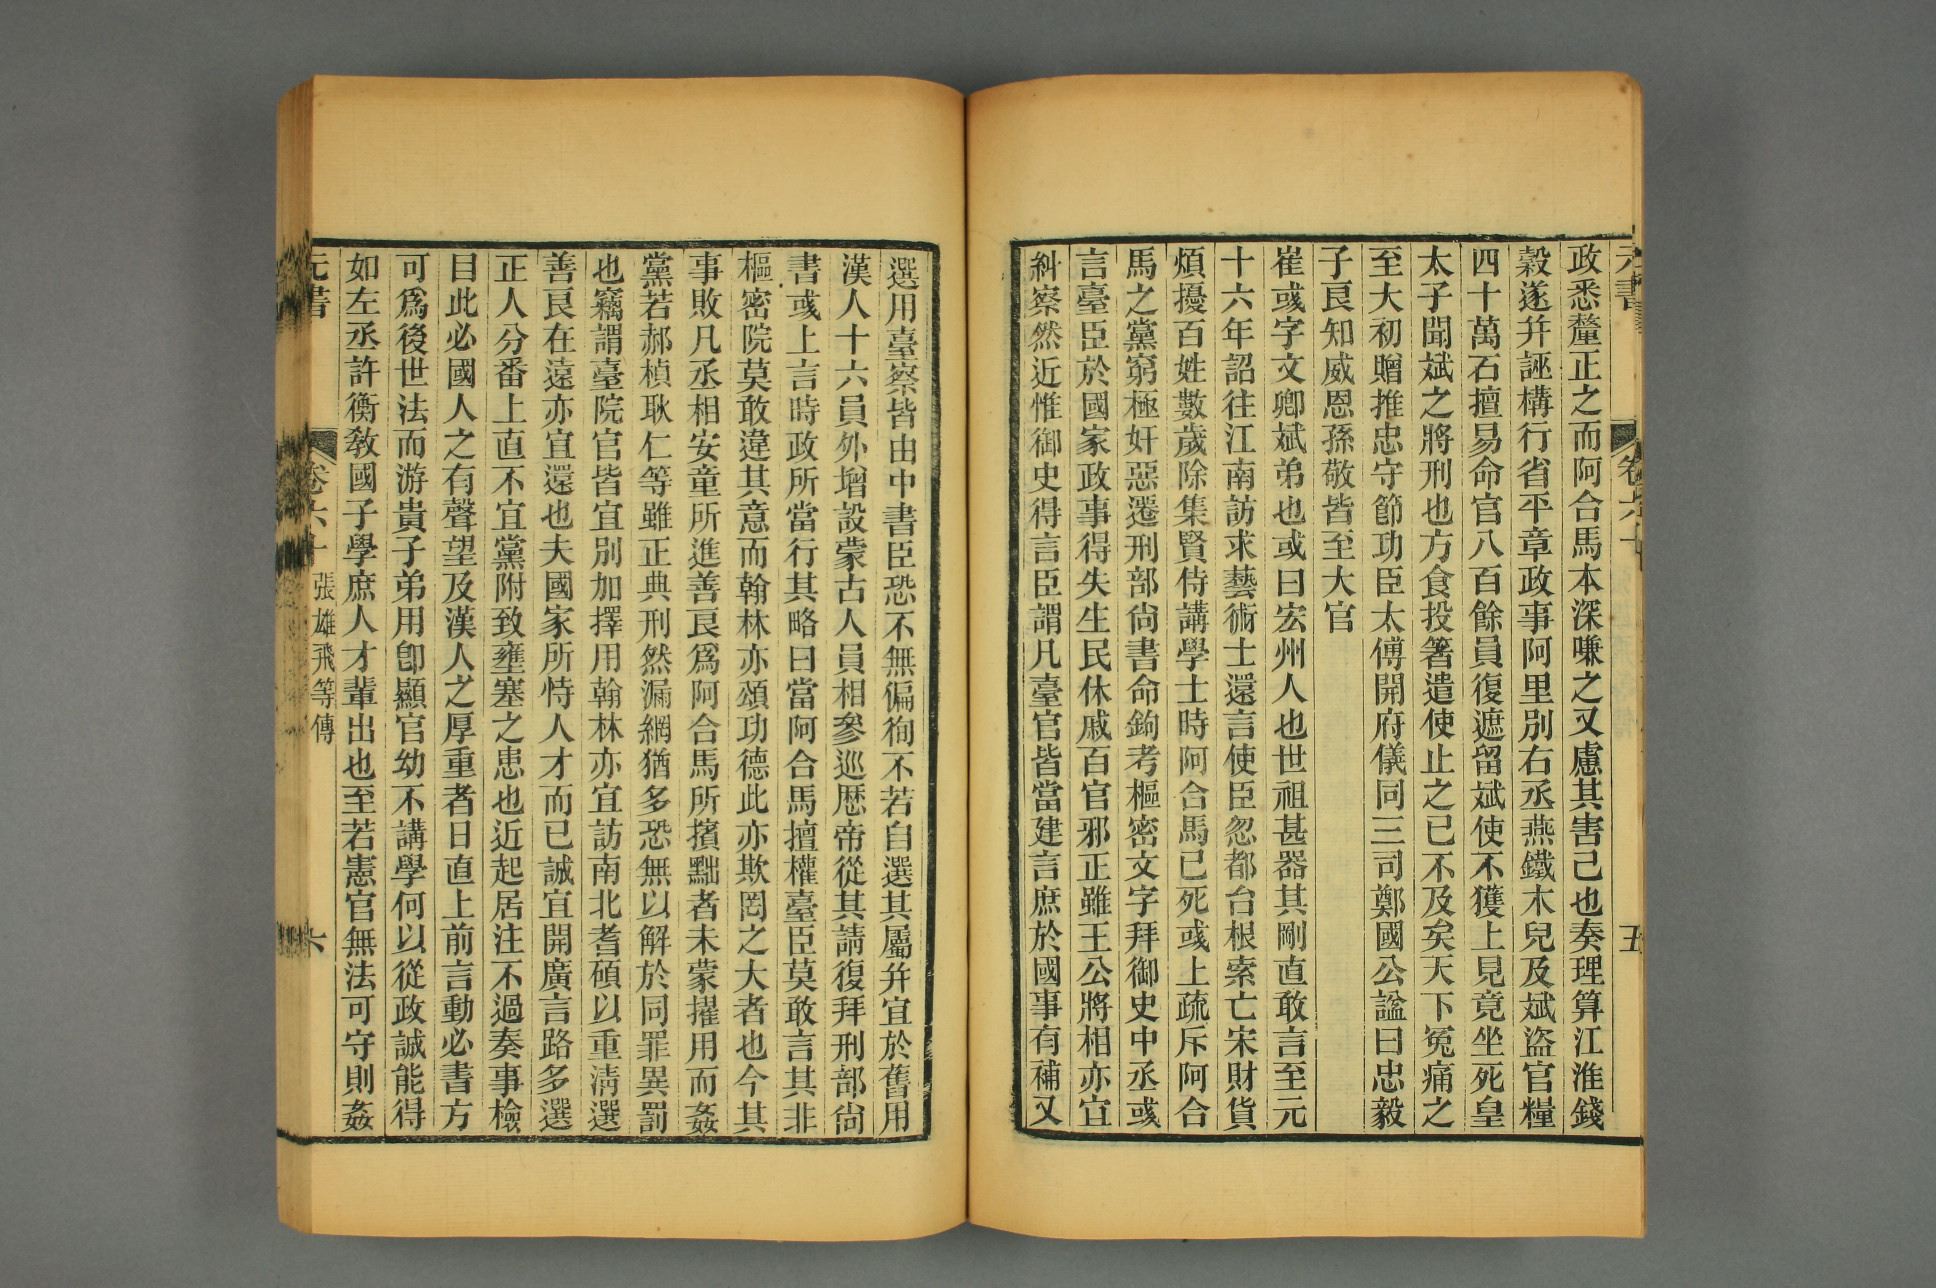 元書
卷六十
五
政悉釐正之而阿合馬本深嗛之又慮其害己也奏理算江淮錢
穀遂幷誣構行省平章政事阿里別右丞燕鐵木兒及斌盜官糧
四十萬石擅易命官八百餘員復遮留斌使不獲上見竟坐死皇
太子聞斌之將刑也方食投箸遣使止之已不及矣天下冤痛之
至大初贈推忠守節功臣太傅開府儀同三司鄭國公諡曰忠毅
子良知威恩孫敬皆至大官
崔彧字文卿斌弟也或曰宏州人也世祖甚器其剛直敢言至元
十六年詔往江南訪求藝術士還言使臣忽都台根索亡宋財貨
煩擾百姓數歲除集賢侍講學士時阿合馬已死彧上疏斥阿合
馬之黨窮極奸惡遷刑部尙書命鉤考樞密文字拜御史中丞彧
言臺臣於國家政事得失生民休戚百官邪正雖王公將相亦宜
糾察然近惟御史得言臣謂凡臺官皆當建言庶於國事有補又
選用臺察皆由中書臣恐不無偏徇不若自選其屬幷宜於舊用
漢人十六員外增設蒙古人員相參巡歷帝從其請復拜刑部尙
書彧上言時政所當行其略曰當阿合馬擅權臺臣莫敢言其非
樞密院莫敢違其意而翰林亦頌功德此亦欺罔之大者也今其
事敗凡丞相安童所進善良爲阿合馬所擯黜者未蒙擢用而姦
黨若郝楨耿仁等雖正典刑然漏網猶多恐無以解於同罪異罰
也竊謂臺院官皆宜別加擇用翰林亦宜訪南北耆碩以重淸選
善良在遠亦宜還也夫國家所恃人才而已誠宜開廣言路多選
正人分番上直不宜黨附致壅塞之患也近起居注不過奏事檢
目此必國人之有聲望及漢人之厚重者日直上前言動必書方
可爲後世法而游貴子弟用卽顯官幼不講學何以從政誠能得
如左丞許衡敎國子學庶人才輩出也至若憲官無法可守則姦
元書
卷六十
張雄飛等傳
六